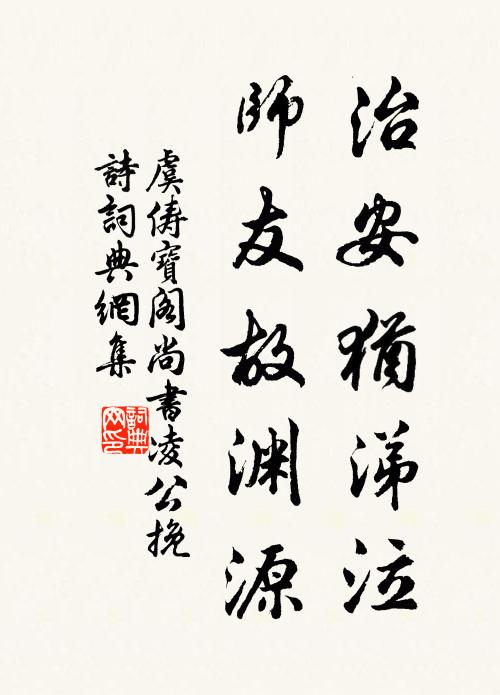 治安猶涕泣
師友故渊源
虞儔寶阁尚書凌公挽
詩詞典網集
詞典网印